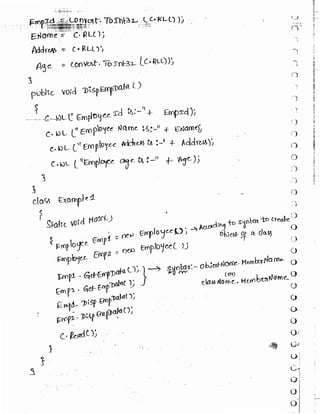 EmpId = Convert.ToInt32 (C.RL());
EName = C.RLL();
Address = C.RLL();
Age = Convert.ToInt32 (C.RLL());
}
public void DispEmpData()
{
C.WL ("Employee Id is:-" + EmpId);
C.WL ("Employee Name is:-" + EName);
C.WL ("Employee Address is :-" + Address);
C.WL ("Employee age is :-" + Age);
}
}
class Example1
{
static void Main()
{
Employee Emp1 = new Employee(); → According to syntax to create object of a class
Employee Emp2 = new Employee();
Emp1.GetEmpData(); } → syntax:- objectName.MemberName
Emp2.GetEmpData(); (or) className.MemberName.
Emp1.DispEmpData();
Emp2.DispEmpData();
C.Read();
}
}
}